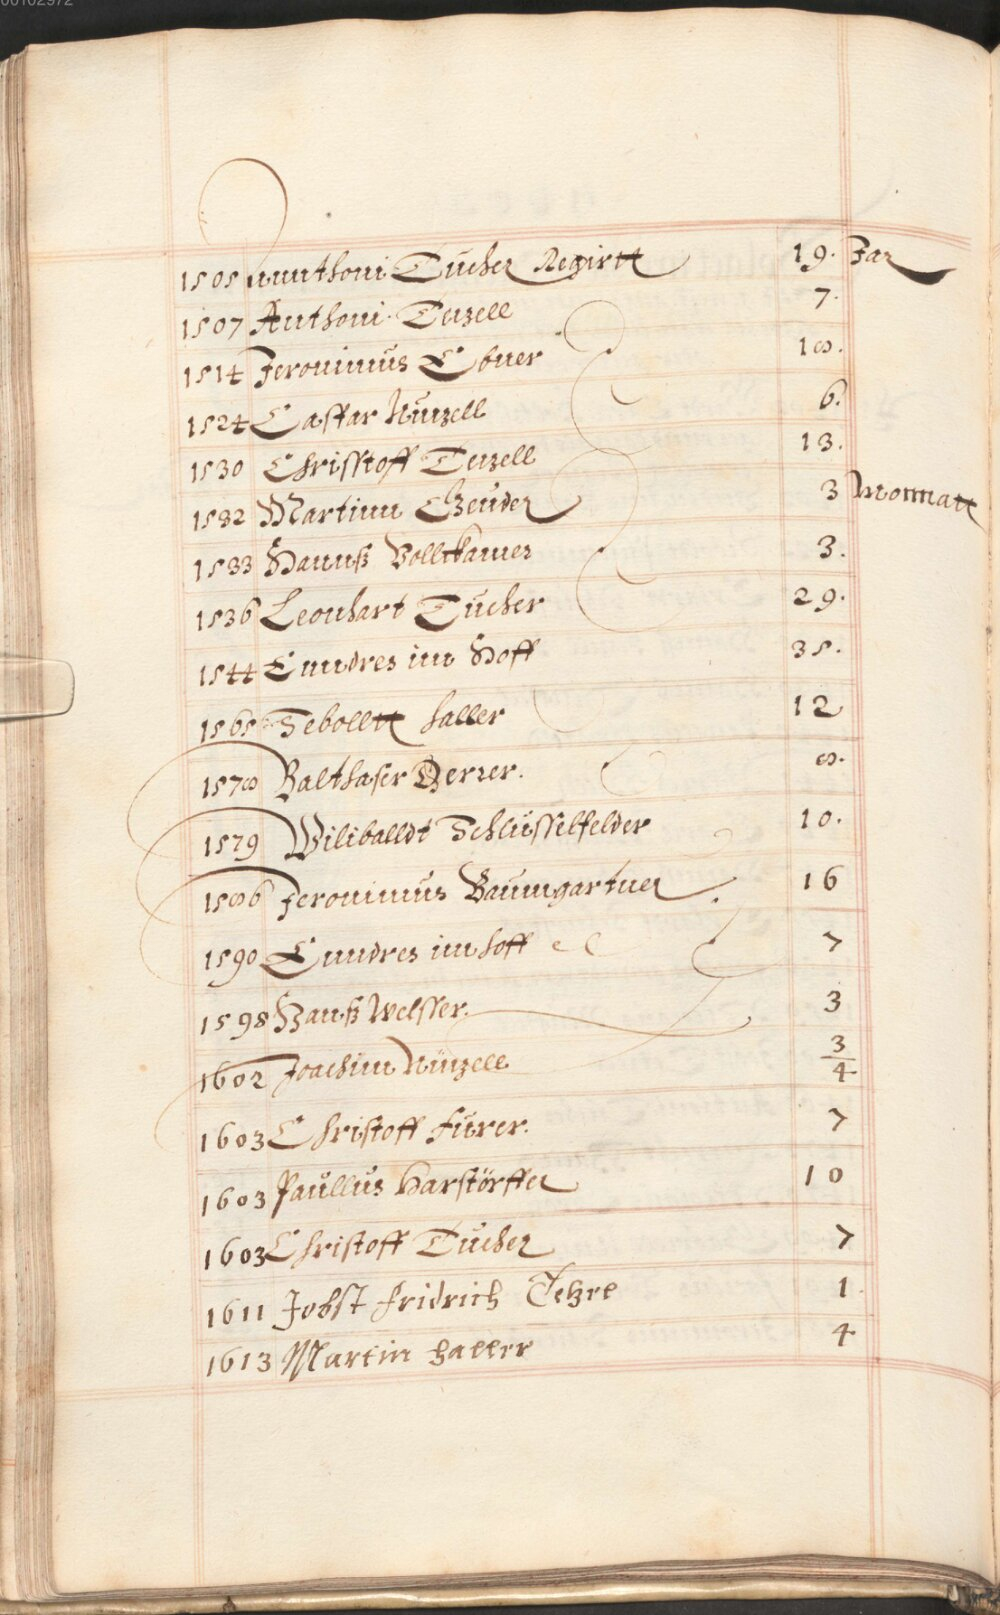 1505 Annthoni Tucher Regirtt 19. Jar
1507 Anthoni Tetzell 7.
1514 Jeronimus Ebner 18.
1524 Caspar Nützell 6.
1530 Chrisstoff Tetzell 13.
1532 Martinn Geuder 3 Monnatt
1533 Hannß Vollkamer 3.
1536 Leonhart Tucher 29.
1544 Enndres im Hoff 35.
1565 Sebolltt Haller 12
1578 Balthaser Derrer. 8.
1579 Wiliballdt Schlüsselfelder 10.
1586 Jeronimus Baumgartner 16
1590 Enndres im hoff 7
1598 Hanß Welsser. 3
1602 Joachim Nützell 3/4
1603 Christoff Fürer. 7
1603 Paullus Harstörffer 10
1603 Christoff Tucher 7
1611 Jobst Fridrich Tetzel 1
1613 Martin Haller 4